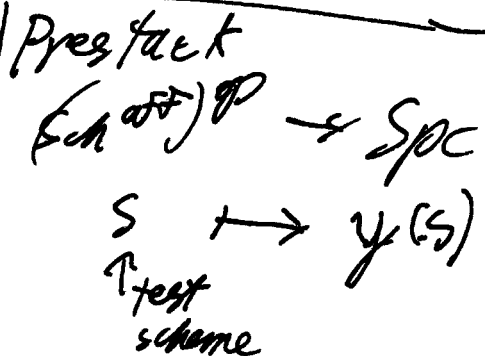 Prestack
(Sch^aff)^op → Spc
S ↦ y(S)
↑ test
scheme